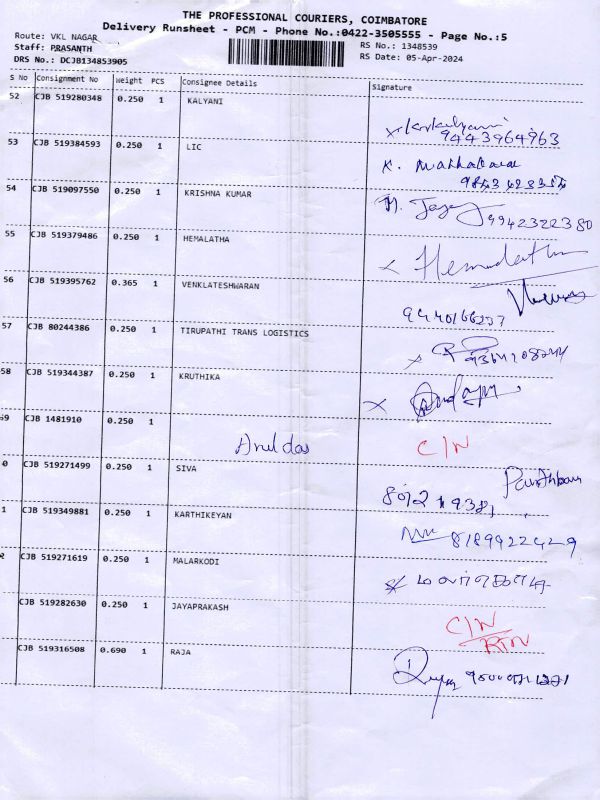 THE PROFESSIONAL COURIERS, COIMBATORE
Delivery Runsheet - PCM - Phone No.:0422-3505555 - Page No.:5
Route: VKL NAGAR
Staff: PRASANTH
DRS No.: DCJB134853905
RS No.: 1348539
RS Date: 05-Apr-2024
S No Consignment No Weight PCS Consignee Details Signature
52 CJB 519280348 0.250 1 KALYANI
9443964963
53 CJB 519384593 0.250 1 LIC
54 CJB 519097550 0.250 1 KRISHNA KUMAR
9942322380
55 CJB 519379486 0.250 1 HEMALATHA Hemalatha
56 CJB 519395762 0.365 1 VENKLATESHWARAN
57 CJB 80244386 0.250 1 TIRUPATHI TRANS LOGISTICS
58 CJB 519344387 0.250 1 KRUTHIKA
59 CJB 1481910 0.250 1
Arul das C/N
0 CJB 519271499 0.250 1 SIVA
1 CJB 519349881 0.250 1 KARTHIKEYAN
8189922429
2 CJB 519271619 0.250 1 MALARKODI
CJB 519282630 0.250 1 JAYAPRAKASH C/N
RTN
CJB 519316508 0.690 1 RAJA